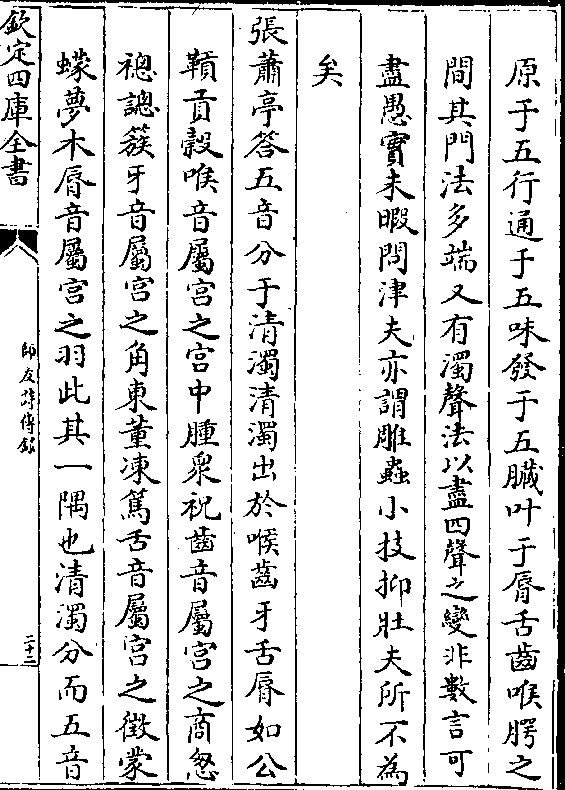 原于五行通于五味發于五臟叶于脣舌齒喉腭之
間其門法多端又有濁聲法以盡四聲之變非數言可
盡愚實未暇問津夫亦謂雕蟲小技抑壯夫所不為
矣
張蕭亭答五音分于清濁清濁出於喉齒牙舌脣如公
顐貢榖喉音屬宫之宫中腫衆祝齒音屬宫之商怱
䙥謥簇牙音屬宫之角東董凍篤舌音屬宫之徵蒙
蠓夢木脣音屬宫之羽此其一隅也清濁分而五音
欽定四庫全書
師友詩傳錄
二十二